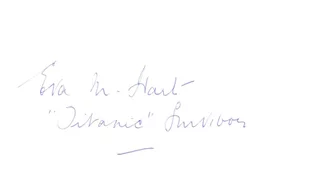 Eva M. Hart
"Titanic" Survivor